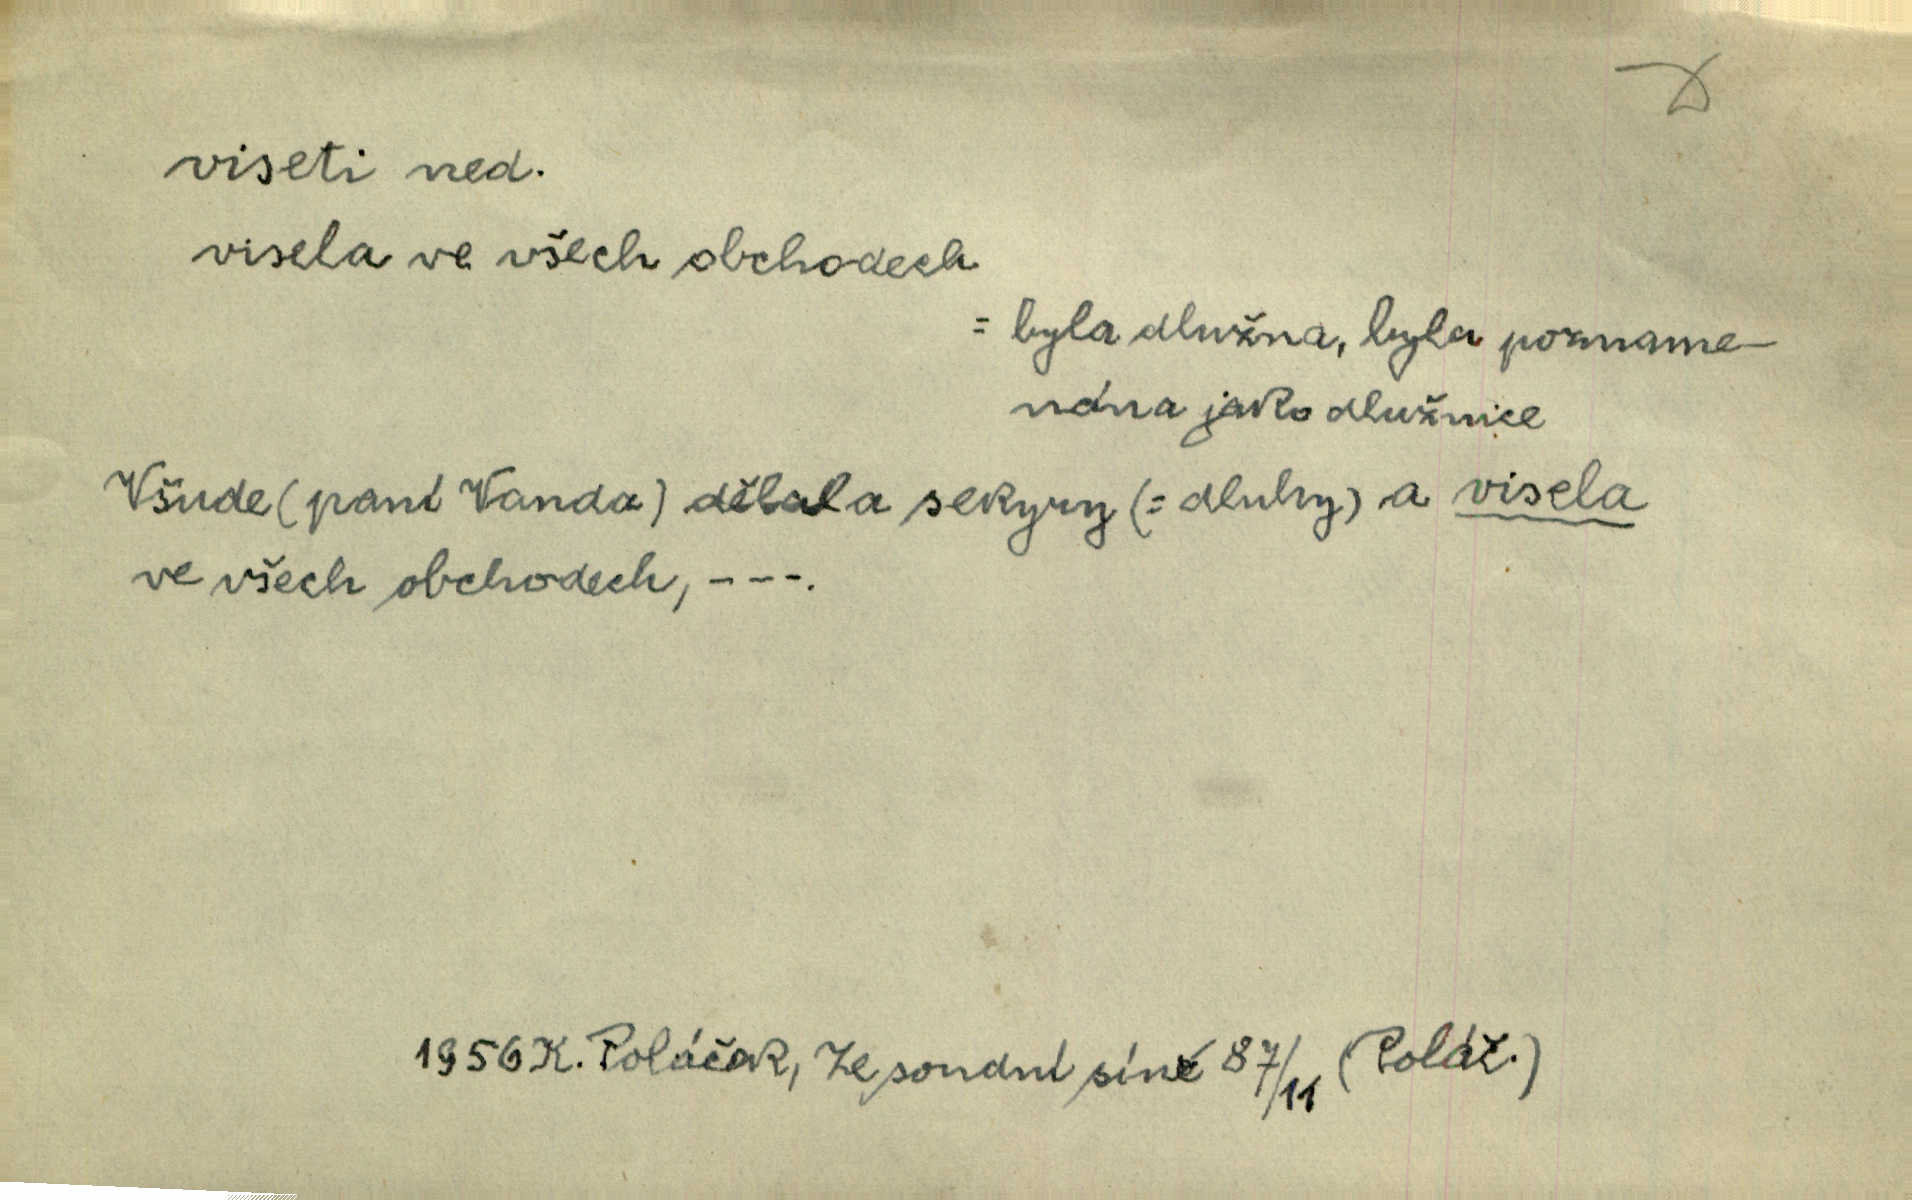 viseti ned.
visela ve všech obchodech
= byla dlužna, byla pozname-
nána jako dlužnice
Všude (paní Vanda) dělala sekyry (= dluhy) a visela
ve všech obchodech, ---.
1956 K. Poláček, Ze soudní síně 87/11 (Poláž.)